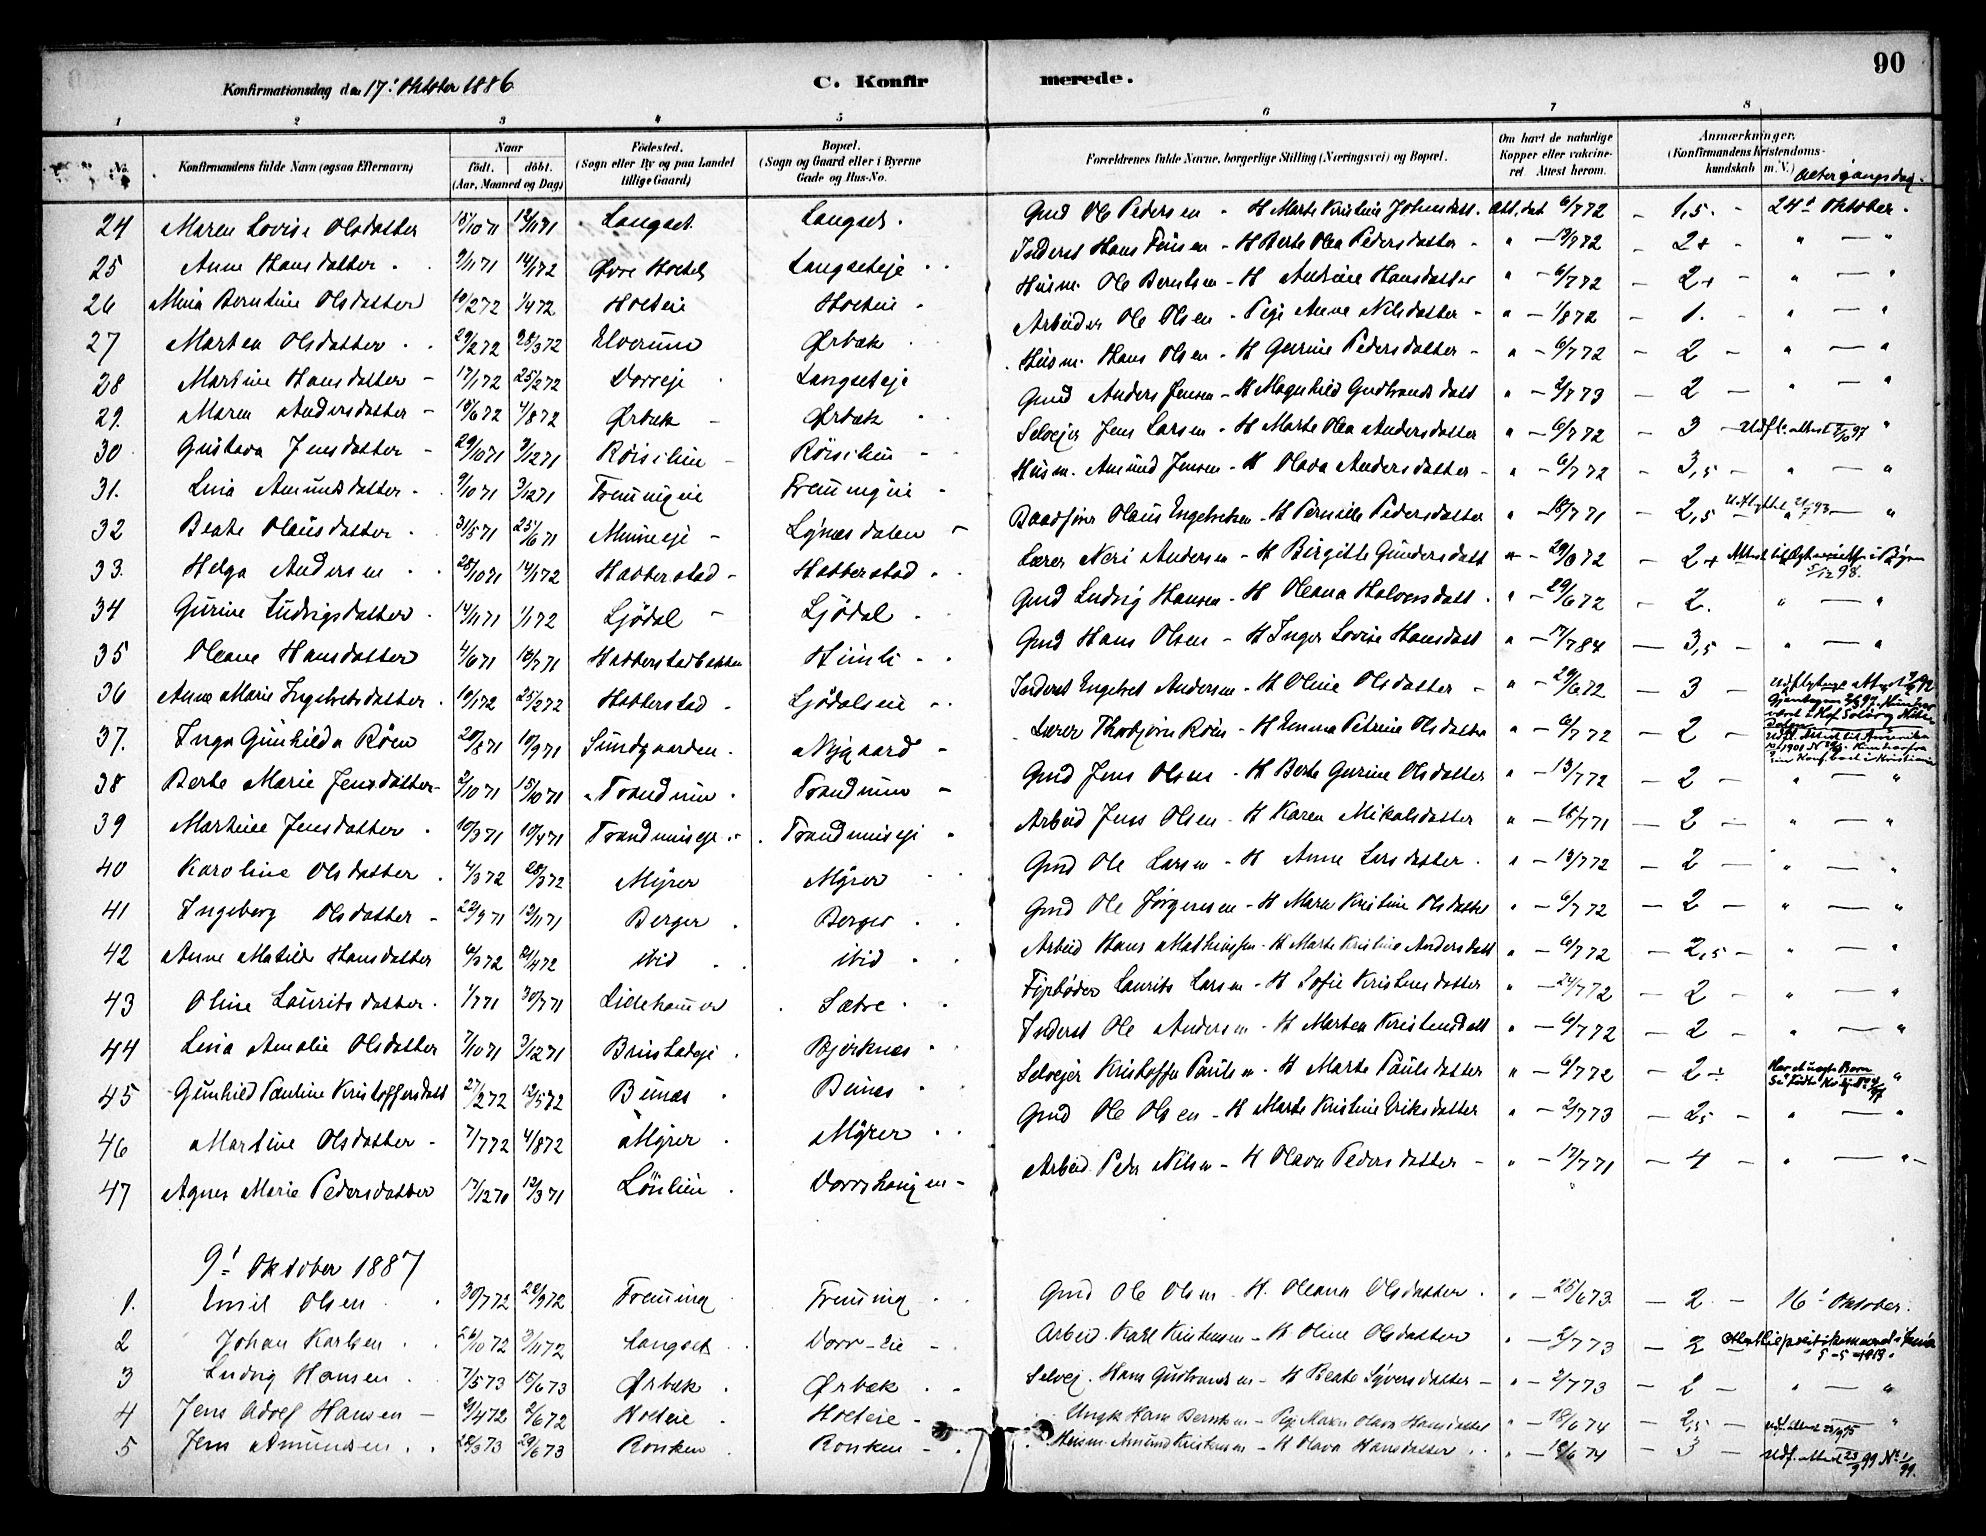 90
Konfirmationsdag den 17' Oktober 1886
C. Konfirmerede.
1 2 3 4 5 6 7 8
No. Konfirmandens fulde Navn (ogsaa Efternavn) Naar født. døbt. (Aar, Maaned og Dag) Fødested. (Sogn eller By og paa Landet tillige Gaard) Bopæl. (Sogn og Gaard eller i Byerne Gade og Hus-No. Forældrenes fulde Navne, borgerlige Stilling (Næringsvei) og Bopæl. Om havt de naturlige Kopper eller vakcineret Attest herom. Anmærkninger. (Konfirmandens Kristendomskundskab m. V.) Altergangsdag.
24 Maren Lovise Olsdatter 18/10 71 12/11 71 Langset Langset. Gmd Ole Pedersen - H Marte Kristine Johnsdatt. Att. dat 6/7 72 - 1,5. - 24' Oktober.
25 Anne Hansdatter 9/11 71 14/1 72 Øvre Holts Langseteje Inderst Hans Finsen - H Berte Olea Pedersdatter " - 19/7 72 - 2+ - " — "
26 Mina Berntine Olsdatter 10/2 72 1/4 72 Holteie Holteie Husm. Ole Berntsen - H Andrine Hansdatter " - 6/7 72 - 2+ " — "
27 Marten Olsdatter 29/2 72 28/3 72 Elverum Ørbæk Arbeider Ole Olsen - Pige Anne Nilsdatter - " - 1/8 72 - 1. - " — "
28 Martine Hansdatter - 17/1 72 25/2 72 Dorreje Langseteje Husm. Hans Olsen - H Gurine Pedersdatter - " - 6/7 72 - 2 - " — "
29. Maren Andersdatter - 18/6 72 4/8 72 Ørbæk Ørbæk Gmd Anders Jensen - H Magnhild Gudbrandsdatt " - 2/7 73 - 2 - " — "
30 Gustava Jensdatter - 29/10 71 3/12 71 Røisilien Røisilien Selvejer Jens Larsen - H Marte Olea Andersdatter " - 6/7 72 - 3 - Udfl. attest 97 "
31. Lina Amundsdatter - 9/10 71 3/12 71 Fremmigeie Fremmigeie Husm. Amund Jensen - H Olava Andersdatter - " - 6/7 72 - 3,5 - " — "
32 Beate Olausdatter 31/5 71 25/6 71 Minneeje Lynæsdalen Baadfører Olaus Engebretsen - H Pernille Pedersdatter " - 18/7 71 - 2,5 Udflyttet 93 — "
33. Helga Andersen 28/10 71 14/1 72 Habberstad Habberstad Lærer Neri Andersen - H Birgitte Gundersdatt " - 29/6 72 - 2+ Attest til 5/12 98.
34 Gurine Ludvigsdatter 14/11 71 1/1 72 Ljødal Ljødal Gmd Ludvig Hansen - H Oleana Halvorsdatt. " - 29/6 72 - 2. " — "
35 Oleane Hansdatter 4/6 71 16/7 71 Habberstadbakken Himli Gmd Hans Olsen - H Inger Lovise Hansdatt " - 17/7 84 - 3,5 - " — "
36 Anne Marie Ingebretsdatter 10/1 72 25/2 72 Habberstad Ljødalseie Inderst Engebret Andersen - H Oline Olsdatter - " - 29/6 72 - 3 -
37. Inga Gunhilda Røen 20/8 71 10/9 71 Sundgaarden Nygaard Lærer Thorbjørn Røen - H Emma Petrine Olsdatter " - 6/7 72 - 2 -
38 Berte Marie Jensdatter - 2/10 71 15/10 71 Trandum Trandum Gmd Jens Olsen - H Berte Gurine Olsdatter " - 13/7 72 - 2 - " — "
39 Martine Jensdatter 10/3 71 10/4 71 Trandumseje Trandumseje Arbeid Jens Olsen - H Karen Mikalsdatter " - 18/7 71 - 2 - " — "
40 Karoline Olsdatter 4/3 72 28/3 72 Myrer Myrer Gmd Ole Larsen - H Anne Larsdatter " - 13/7 72 - 2 - " — "
41 Ingeborg Olsdatter - 22/9 71 12/11 71 Berger Berger Gmd Ole Jørgensen - H Maren Kristine Olsdatter " - 6/7 72 - 2 - " — "
42 Anne Matilde Hansdatter 6/3 72 21/4 72 ibid ibid Arbeid Hans Mathiassen - H Marte Kristine Andersdatt " - 6/7 72 - 2,5 - " — "
43 Oline Lauritsdatter 1/7 71 30/7 71 Lillehammer Sætre Fyrbøder Laurits Larsen - H Sofie Kristensdatter " - 24/7 72 - 2 - " — "
44 Lina Amalie Olsdatter 7/10 71 3/12 71 Brustadeje Bjørknæs Inderst Ole Andersen - H Marten Kristensdatt " - 6/7 72 - 2 - " — "
45 Gunhild Pauline Kristoffersdatt 27/2 72 12/5 72 Bunæs Bunæs Selvejer Kristoffer Paulsen - H Marte Paulsdatter " - 6/7 72 - 2÷ Har uægte Barn "
46 Martine Olsdatter - 7/7 72 4/8 72 Myrer Myrer Gmd Ole Olsen - H Marte Kristine Eriksdatter " - 2/7 73 - 2,5 - " — "
47 Agnes Marie Pedersdatter 17/12 70 12/3 71 Lönlien Dorrshaugen - Arbeid Peder Nilsen - H Olava Pedersdatter - " - 17/7 71 - 4 - " — "
9' Oktober 1887
1. Emil Olsen 30/7 72 22/9 72 Fremming Fremming Gmd Ole Olsen - H. Oleana Olsdatter " - 25/6 73 - 2 - 16' Oktober.
2 Johan Karlsen 26/10 72 3/11 72 Langset Dorr-Eie - Arbeid. Karl Kristensen - H Oline Olsdatter " - 2/7 73 - 2 5-5-1913.
3 Ludvig Hansen 7/5 73 15/6 73 Ørbæk Ørbæk Selvej. Hans Gudbrandsen - H Beate Syversdatter - " - 2/7 73 - 2 - " — "
4 Jens Adolf Hansen - 21/4 72 2/6 72 Holteie Holteie Ungk Hans Berntsen - Pige Maren Olava Hansdatter " - 18/6 74 - 2,5 - Udf. attest 95 "
5 Jens Amundsen 28/3 73 29/6 73 Ronken Ronken Husm. Amund Kristensen - H Olava Hansdatter " - 18/6 74 - 3 - Udf. attest 23/9 99 No 1/99.